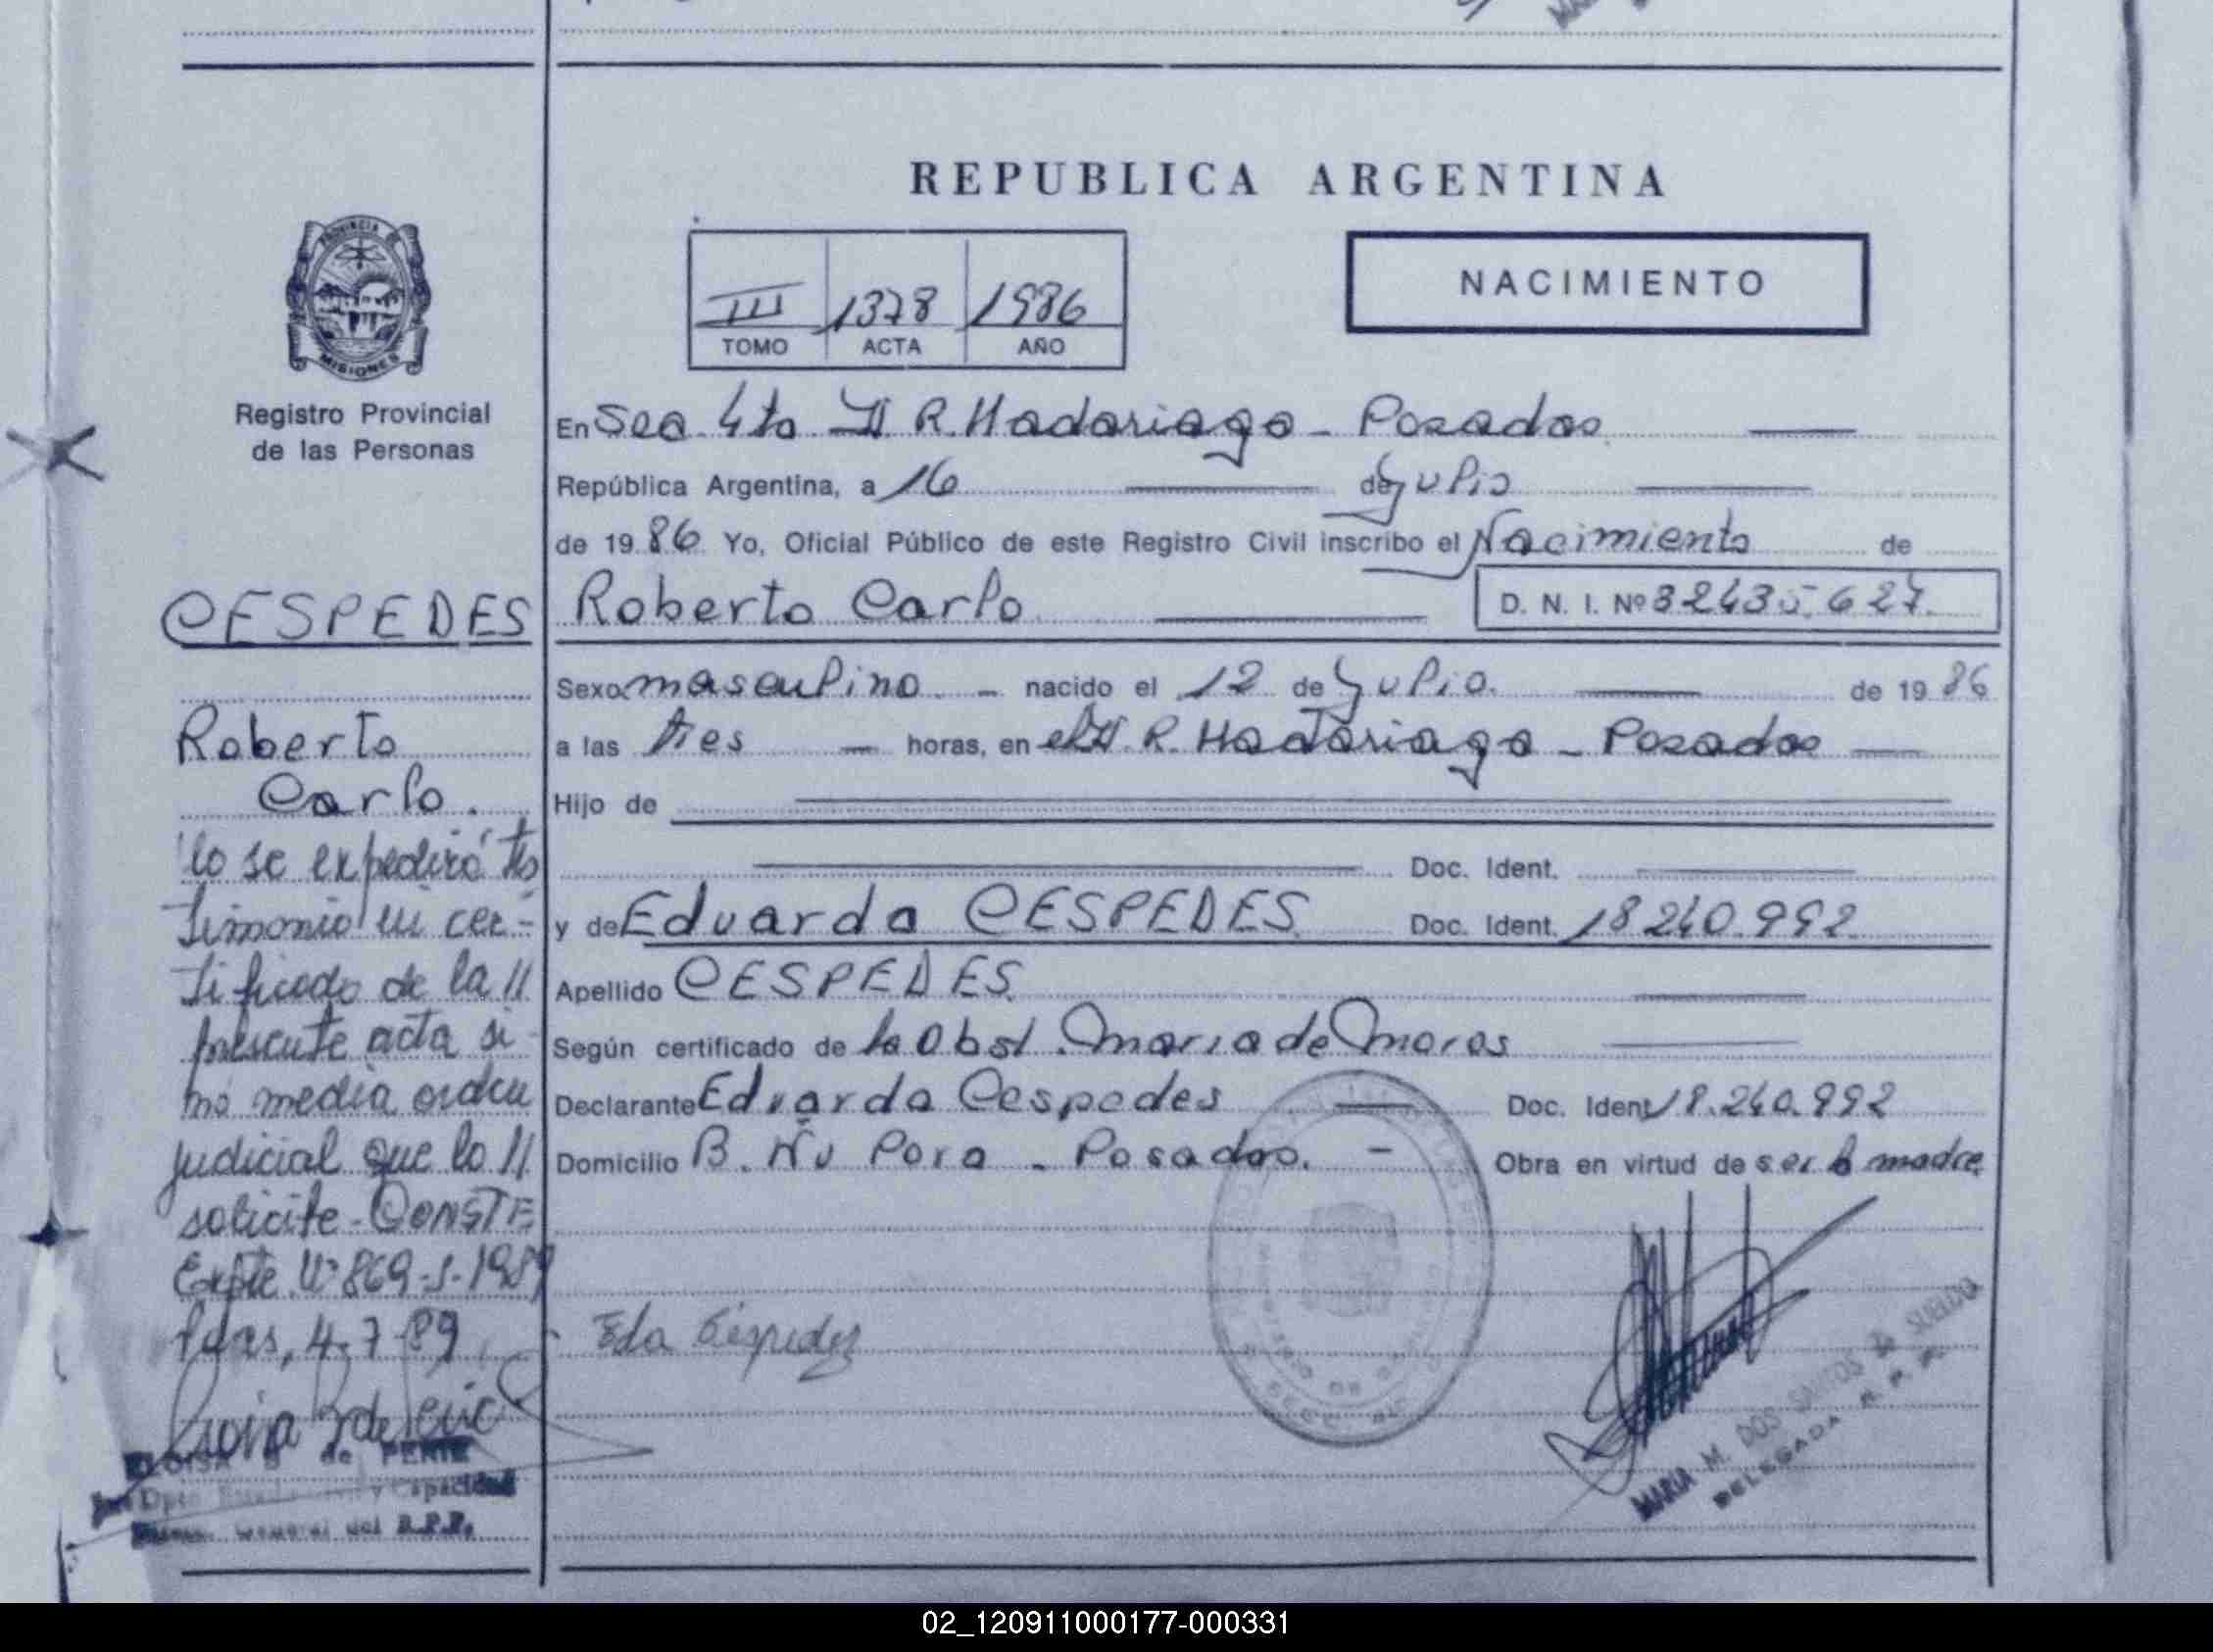 REPUBLICA ARGENTINA
PROVINCIA DE
MISIONES
Registro Provincial
de las Personas
III 1378 1986
TOMO ACTA AÑO
NACIMIENTO
En Sec. 4ta H R. Madariaga - Posadas
República Argentina, a 16 de Julio
de 1986 Yo, Oficial Público de este Registro Civil inscribo el Nacimiento de
Roberto Carlo D. N. I. Nº 32435.627
Sexo masculino. - nacido el 12 de Julio. de 1986
a las tres horas, en el H. R. Madariaga - Posadas
Hijo de
Doc. Ident.
y de Eduarda CESPEDES. Doc. Ident. 18240.992
Apellido CESPEDES.
Según certificado de la Obst. Maria de Moros
Declarante Eduarda Cespedes Doc. Ident 18.240.992
Domicilio B. Ñu Pora - Posadas. - Obra en virtud de ser la madre
Eda Céspedes
MARIA M. DOS SANTOS de SUELDO
DELEGADA R. P. P.
CESPEDES
Roberto
Carlo.
lo se expedirá tes
timonio ni cer-
tificado de la //
presente acta si
no media orden
judicial que lo //
solicite - CONSTE
Expte. Nº 869-S-1989
Pdas, 4-7-89
ELOISA de
Dpto y Capacidad
General del R.P.P.
02_120911000177-000331